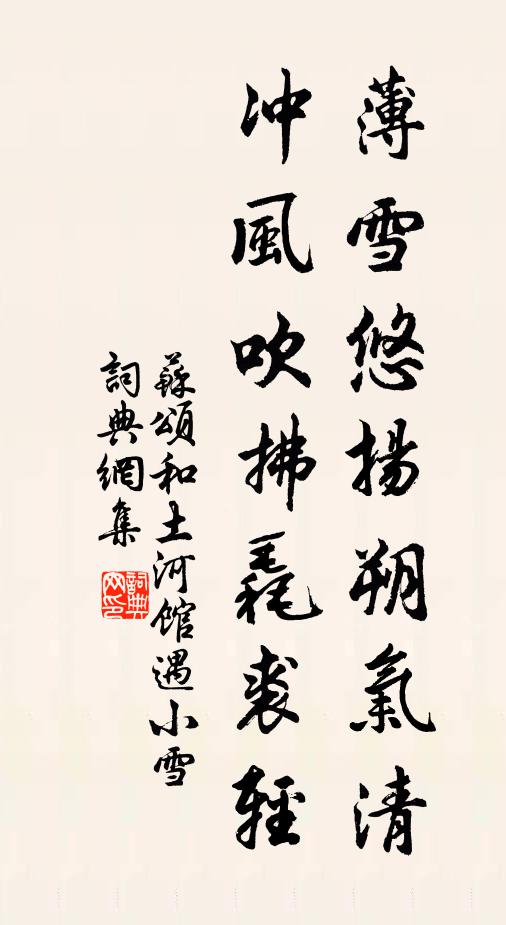 薄雪悠揚朔氣清
冲風吹拂毳裘輕
蘇頌和土河館遇小雪
詞典網集
詞典網印